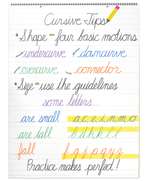 Cursive Tips
*Shape - four basic motions
undercurve downcurve
overcurve connector
*Size - use the guidelines
some letters...
are small a c e i m n o
are tall
fall f j p q y z
Practice makes perfect!